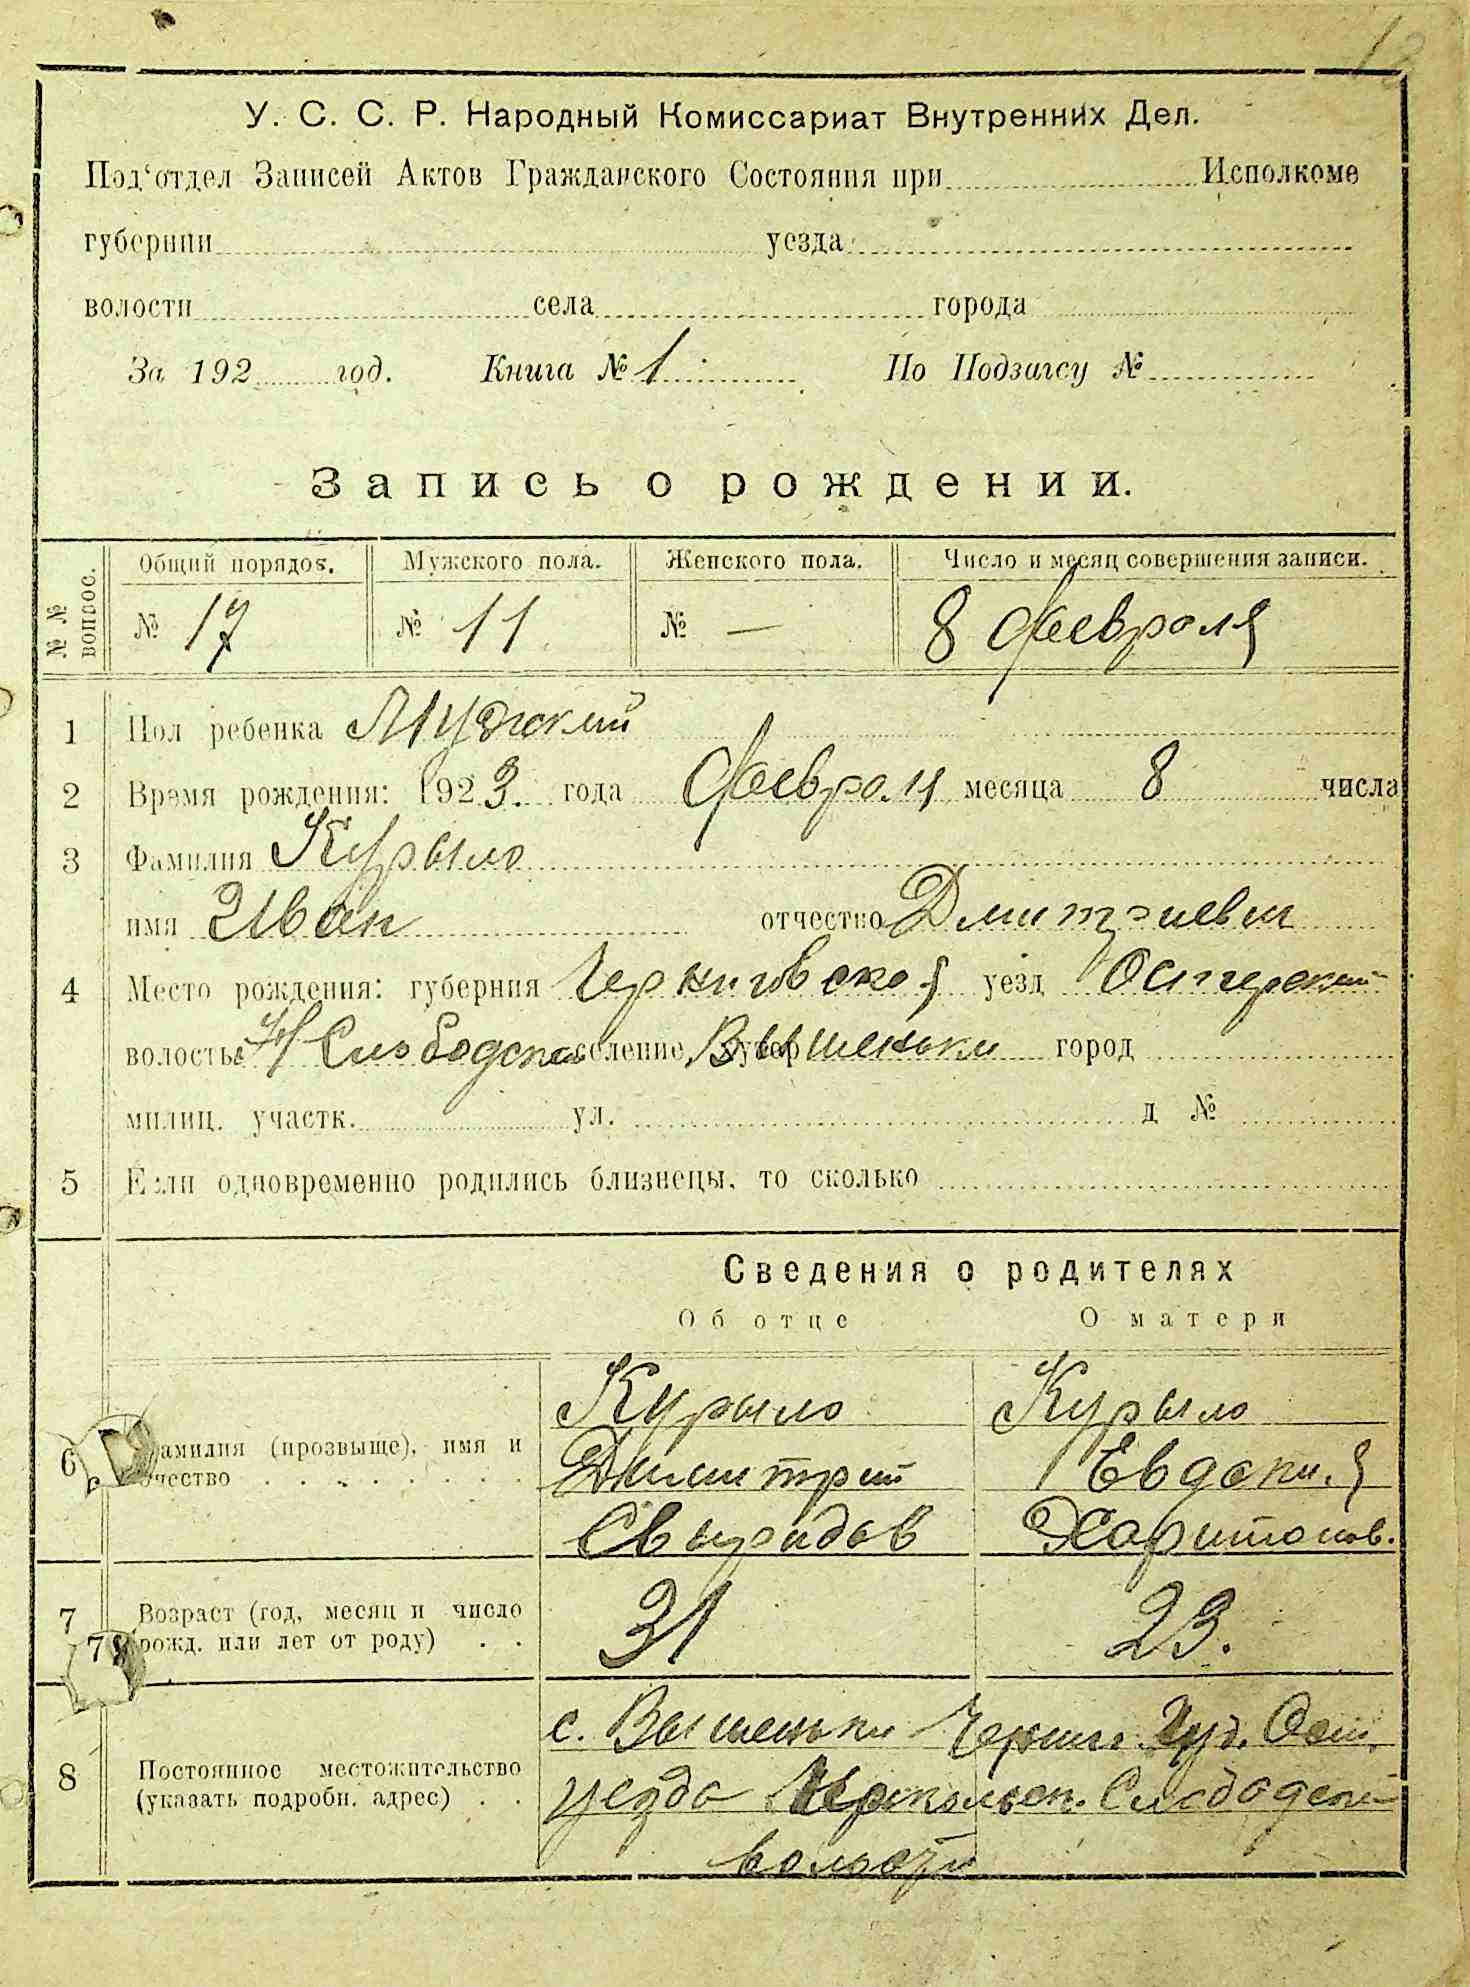 У. С. С. Р. Народный Комиссариат Внутренних Дел.
Под'отдел Записей Актов Гражданского Состояния при Исполкоме
губернии уезда
волости села города
За 192 год. Книга № 1. По Подзагсу №
Запись о рождении.
№ № вопрос. Общий порядов. Мужского пола. Женского пола. Число и месяц совершения записи.
№ 17 № 11 № — 8 февраля
1 Пол ребенка Мужский
2 Время рождения: 1923. года февраля месяца 8 числа
3 Фамилия Курыло
имя Иван отчество Дмитриевич
4 Место рождения: губерния Черниговская уезд Остерский
волость Н Слободская селение, хутор Вышеньки город
милиц. участк. ул. д №
5 Если одновременно родились близнецы, то сколько
Сведения о родителях
Об отце О матери
Курыло Курыло
6 Фамилия (прозвище), имя и Димитрий Евдокия
отчество Свиридов Харитонов.
7 Возраст (год, месяц и число 31 23.
7 рожд. или лет от роду)
с. Вышеньки Черниг. Губ. Ост.
8 Постоянное местожительство уезда Никольск. Слободской
(указать подробн. адрес) волости